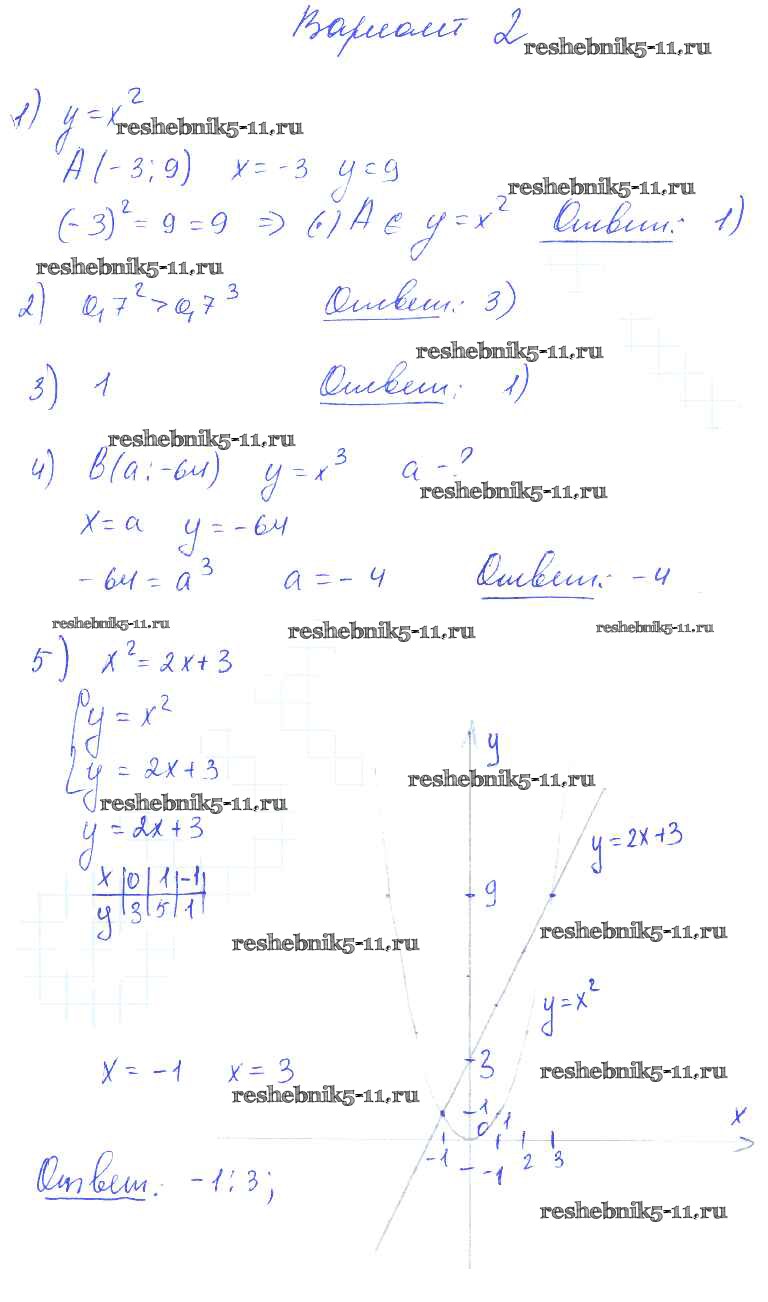 Вариант 2
reshebnik5-11.ru
1) y = x²
reshebnik5-11.ru
A(-3; 9) x = -3 y = 9
reshebnik5-11.ru
(-3)² = 9 = 9 => (·) A ∈ y = x² Ответ: 1)
reshebnik5-11.ru
2) 0,7² > 0,7³ Ответ: 3)
reshebnik5-11.ru
3) 1 Ответ: 1)
reshebnik5-11.ru
4) B(a; -64) y = x³ a - ?
reshebnik5-11.ru
x = a y = -64
-64 = a³ a = -4 Ответ: -4
reshebnik5-11.ru reshebnik5-11.ru reshebnik5-11.ru
5) x² = 2x + 3
{ y = x²
y = 2x + 3
reshebnik5-11.ru
y = 2x + 3
x 0 1 -1
y 3 5 1
reshebnik5-11.ru
x = -1 x = 3
reshebnik5-11.ru
Ответ: -1; 3;
y
reshebnik5-11.ru
y = 2x + 3
9
reshebnik5-11.ru
y = x²
3
reshebnik5-11.ru
-1 1 x
0
-1 -1 2 3
reshebnik5-11.ru